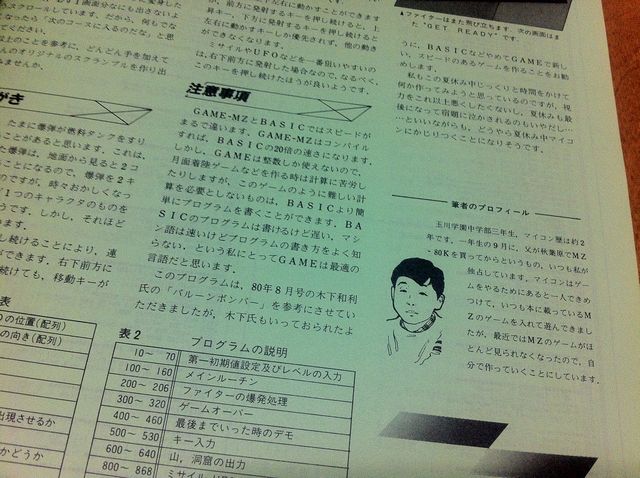 スクロールしています。だから，何もでな
なったら「次のコースに入るのだな」と思
以上のことを参考に，どんどん手を加えて
んのオリジナルのスクランブルを作り出
がき
たまに爆弾が燃料タンクをすり
ことがあると思います。これは，
た爆弾は，地面から見ると2コ
ことになるので，爆弾を2キ
のですが，時々おかしくなっ
1つのキャラクタのものを
うです。しかし，それほど
ます。
し続けることにより，連
できます。右下前方に
続けても，移動キーが
表
の位置(配列)
の向き(配列)
出現させるか
かどうか
前方に発射するキーを押し続けると，上
昇キー，下方に発射するキーを押し続けると
左右に動かすキーしか優先されず，他の動き
ができなくなります。
ミサイルやUFOなどを一番狙いやすいの
は，右下前方に発射した場合なので，なるべく，
このキーを押し続けたほうが良いようです。
注意事項
GAME-MZとBASICではスピードが
まるで違います。GAME-MZはコンパイル
すれば，BASICの20倍の速さになります。
しかし，GAMEは整数しか使えないので，
月面着陸ゲームなどを作る時は計算に苦労し
たりしますが，このゲームのように難しい計
算を必要としないものは，BASICより簡
単にプログラムを書くことができます。BA
SICのプログラムは書けるけど遅い，マシ
ン語は速いけどプログラムの書き方をよく知
らない，という私にとってGAMEは最適の
言語だと思います。
このプログラムは，80年8月号の木下和利
氏の「バルーンボンバー」を参考にさせてい
ただきましたが，木下氏もいっておられたよ
表2 プログラムの説明
10～ 70 第一初期値設定及びレベルの入力
100～ 160 メインルーチン
200～ 206 ファイターの爆発処理
300～ 320 ゲームオーバー
400～ 460 最後までいった時のデモ
500～ 530 キー入力
600～ 640 山，洞窟の出力
800～ 868
▲ファイターはまた飛び立ちます。次の画面は
"GET READY"です。
うに，BASICなどやめてGAMEで新し
い，スピードのあるゲームを作ることをお勧
めします。
私もこの夏休み中じっくりと時間をかけて
何か作ってみようと思っているのですが，視
力をこれ以上悪くしたくないし，夏休みも最
後になって宿題に泣かされるのもいやだし…
…といいながらも，どうやら夏休み中マイコ
ンにかじりつくことになりそうです。
筆者のプロフィール
玉川学園中学部三年生，マイコン歴は約2
年です。一年生の9月に，父が秋葉原でMZ
-80Kを買ってからというもの，いつも私が
独占しています。マイコンはゲー
ムをやるためにあると一人できめ
つけて，いつも本に載っているM
Zのゲームを入れて遊んできまし
たが，最近ではMZのゲームがほ
とんど見られなくなったので，自
分で作っていくことにしています。